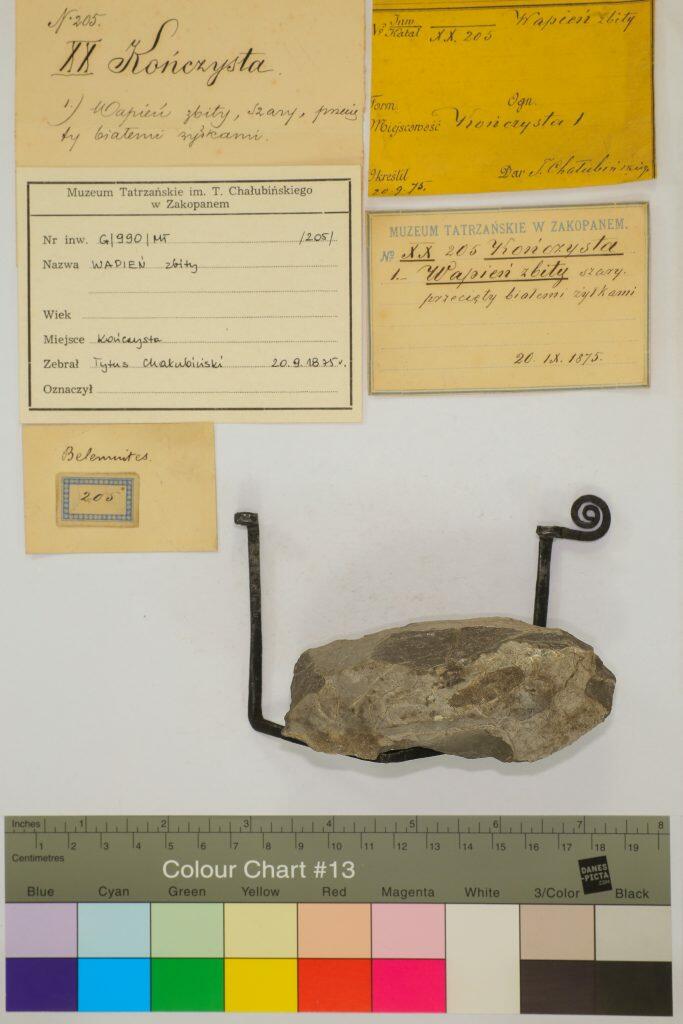 N. 205.
XX Kończysta.
1.) Wapień zbity, szary, przecię
ty białemi żyłkami.
№ Inw. Katal XX. 205 Wapień zbity
Form. Ogn.
Miejscowość Kończysta 1
Określił Dar T. Chałubińskiego
20.9.75.
Muzeum Tatrzańskie im. T. Chałubińskiego
w Zakopanem
Nr inw. G/990/MT /205/.
Nazwa WAPIEŃ zbity
Wiek
Miejsce Kończysta
Zebrał Tytus Chałubiński 20.9.1875r.
Oznaczył
MUZEUM TATRZAŃSKIE W ZAKOPANEM.
№ XX 205 Kończysta
1. Wapień zbity szary.
przecięty białemi żyłkami
20.IX.1875.
Belemnites.
205
Inches 1 2 3 4 5 6 7 8
1 2 3 4 5 6 7 8 9 10 11 12 13 14 15 16 17 18 19
Centimetres
Colour Chart #13
DANES
-PICTA
.COM
Blue Cyan Green Yellow Red Magenta White 3/Color Black